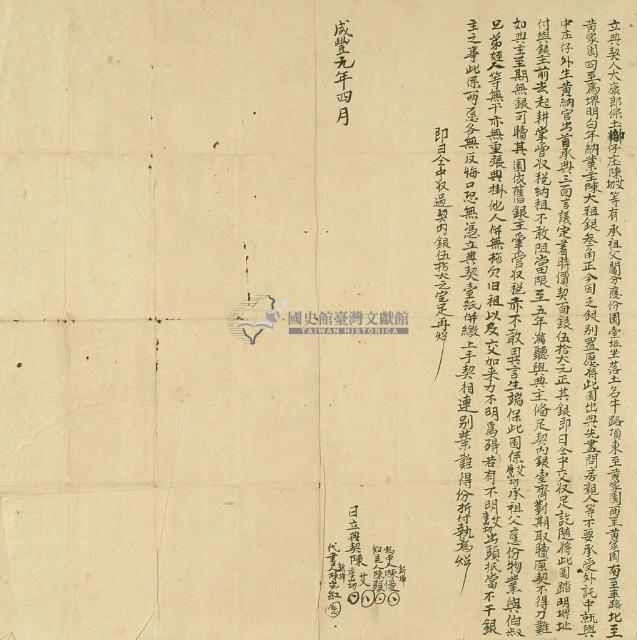 立典契人大康郎保土獅仔庄陳坺艾等有承祖父鬮分應份園壹坵坐落土名牛路頂東至黃家園西至黃家園南至車路北至
黃家園四至為堺明白年納業主陳大租銀叁角正今因乏銀別置愿將此園出典先盡問房親人等不要承受外託中就與
中庄仔外生黃納官出首承典三面言議定著時價契面銀伍拾大元正其銀即日仝中交收足訖隨將此園踏明堺址
付與銀主前去起耕掌管收稅納租不敢阻當限至五年滿聽與典主備足契內銀壹齊對期取贖原契不得刁難
如典主至期無銀可贖其園依舊銀主掌管收稅亦不敢異言生端保此園係艾承祖父應份物業與伯叔
兄弟姪人等無干亦無重張典掛他人併無拖欠旧租以及交加來力不明為碍若有不明艾出頭抵當不干銀
主之事此係兩愿各無反悔口恐無憑立典契壹紙併繳上手契相連別業難得份折付執為炤
即日仝中收過契內銀伍拾大元完足再炤
咸豐元年四月
為中人陳
知見人陳
日立典契陳艾
代書人陳紅
國史館臺灣文獻館
TAIWAN HISTORICA